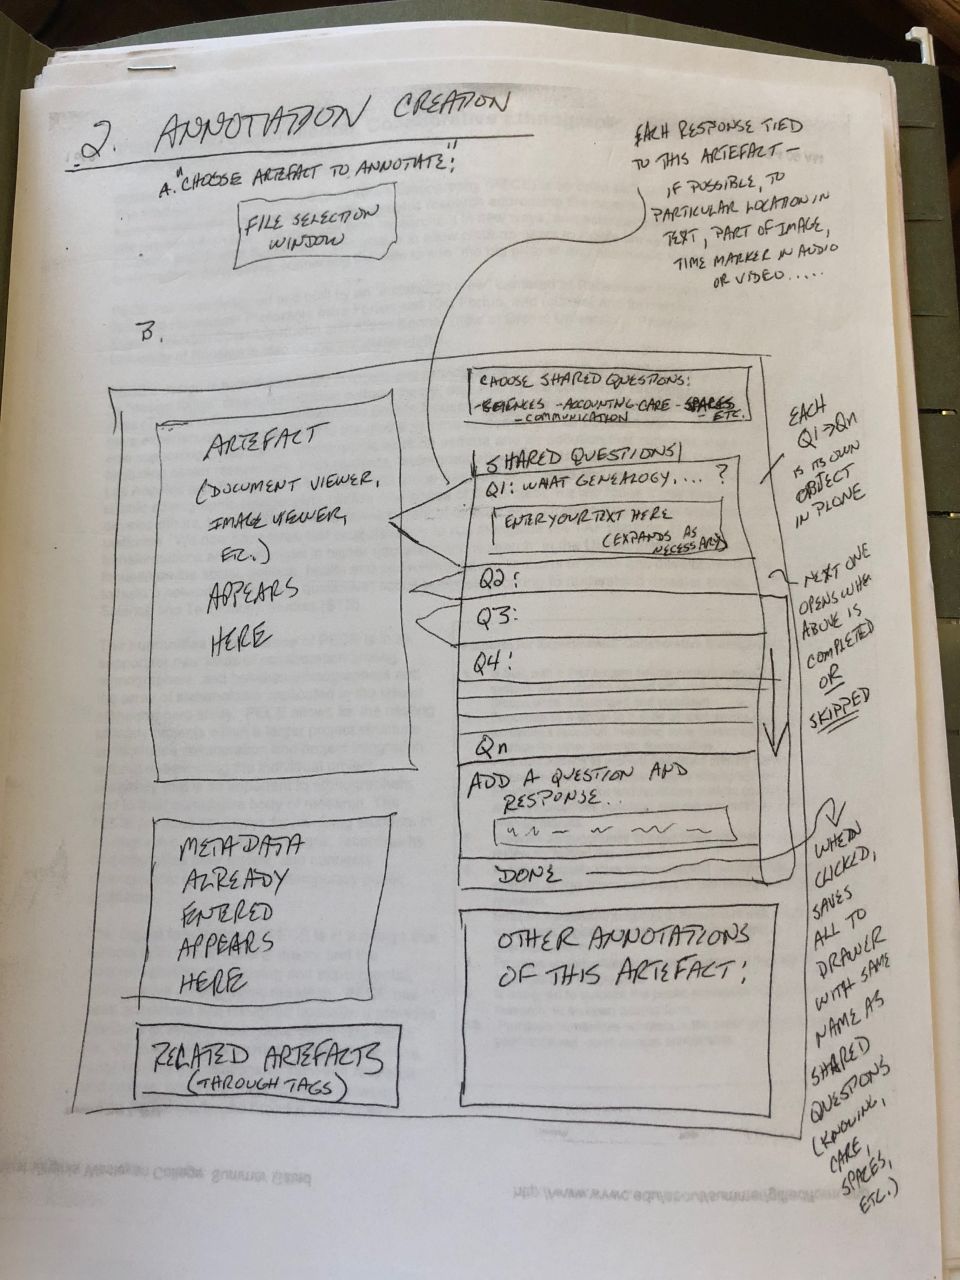 2. ANNOTATION CREATION
A. "CHOOSE ARTEFACT TO ANNOTATE:"
FILE SELECTION
WINDOW
EACH RESPONSE TIED
TO THIS ARTEFACT –
IF POSSIBLE, TO
PARTICULAR LOCATION IN
TEXT, PART OF IMAGE,
TIME MARKER IN AUDIO
OR VIDEO.....
B.
ARTEFACT
(DOCUMENT VIEWER,
IMAGE VIEWER,
ETC.)
APPEARS
HERE
METADATA
ALREADY
ENTERED
APPEARS
HERE
RELATED ARTEFACTS
(THROUGH TAGS)
CHOOSE SHARED QUESTIONS:
-SCIENCES -ACCOUNTING CARE -SPACES
-COMMUNICATION - ETC.
SHARED QUESTIONS
Q1: WHAT GENEALOGY,... ?
ENTER YOUR TEXT HERE
(EXPANDS AS
NECESSARY)
Q2:
Q3:
Q4:
Qn
ADD A QUESTION AND
RESPONSE...
DONE
OTHER ANNOTATIONS
OF THIS ARTEFACT:
EACH
Q1→Qn
IS ITS OWN
OBJECT
IN PLONE
NEXT ONE
OPENS WHEN
ABOVE IS
COMPLETED
OR
SKIPPED
WHEN
CLICKED,
SAVES
ALL TO
DRAWER
WITH SAME
NAME AS
SHARED
QUESTIONS
(KNOWING,
CARE,
SPACES,
ETC.)